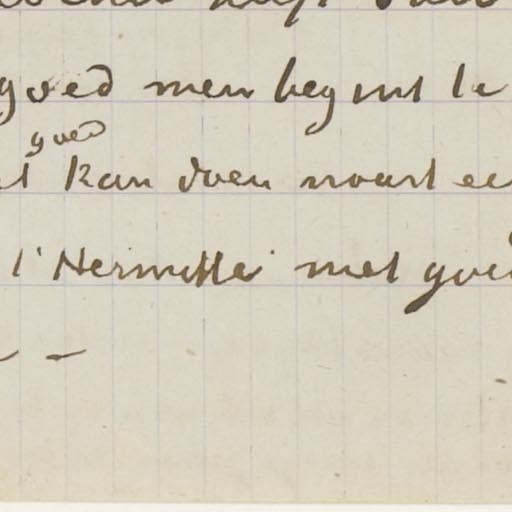 goed men begint te
goed
kan doen naast ee
l'Hermitte met goe